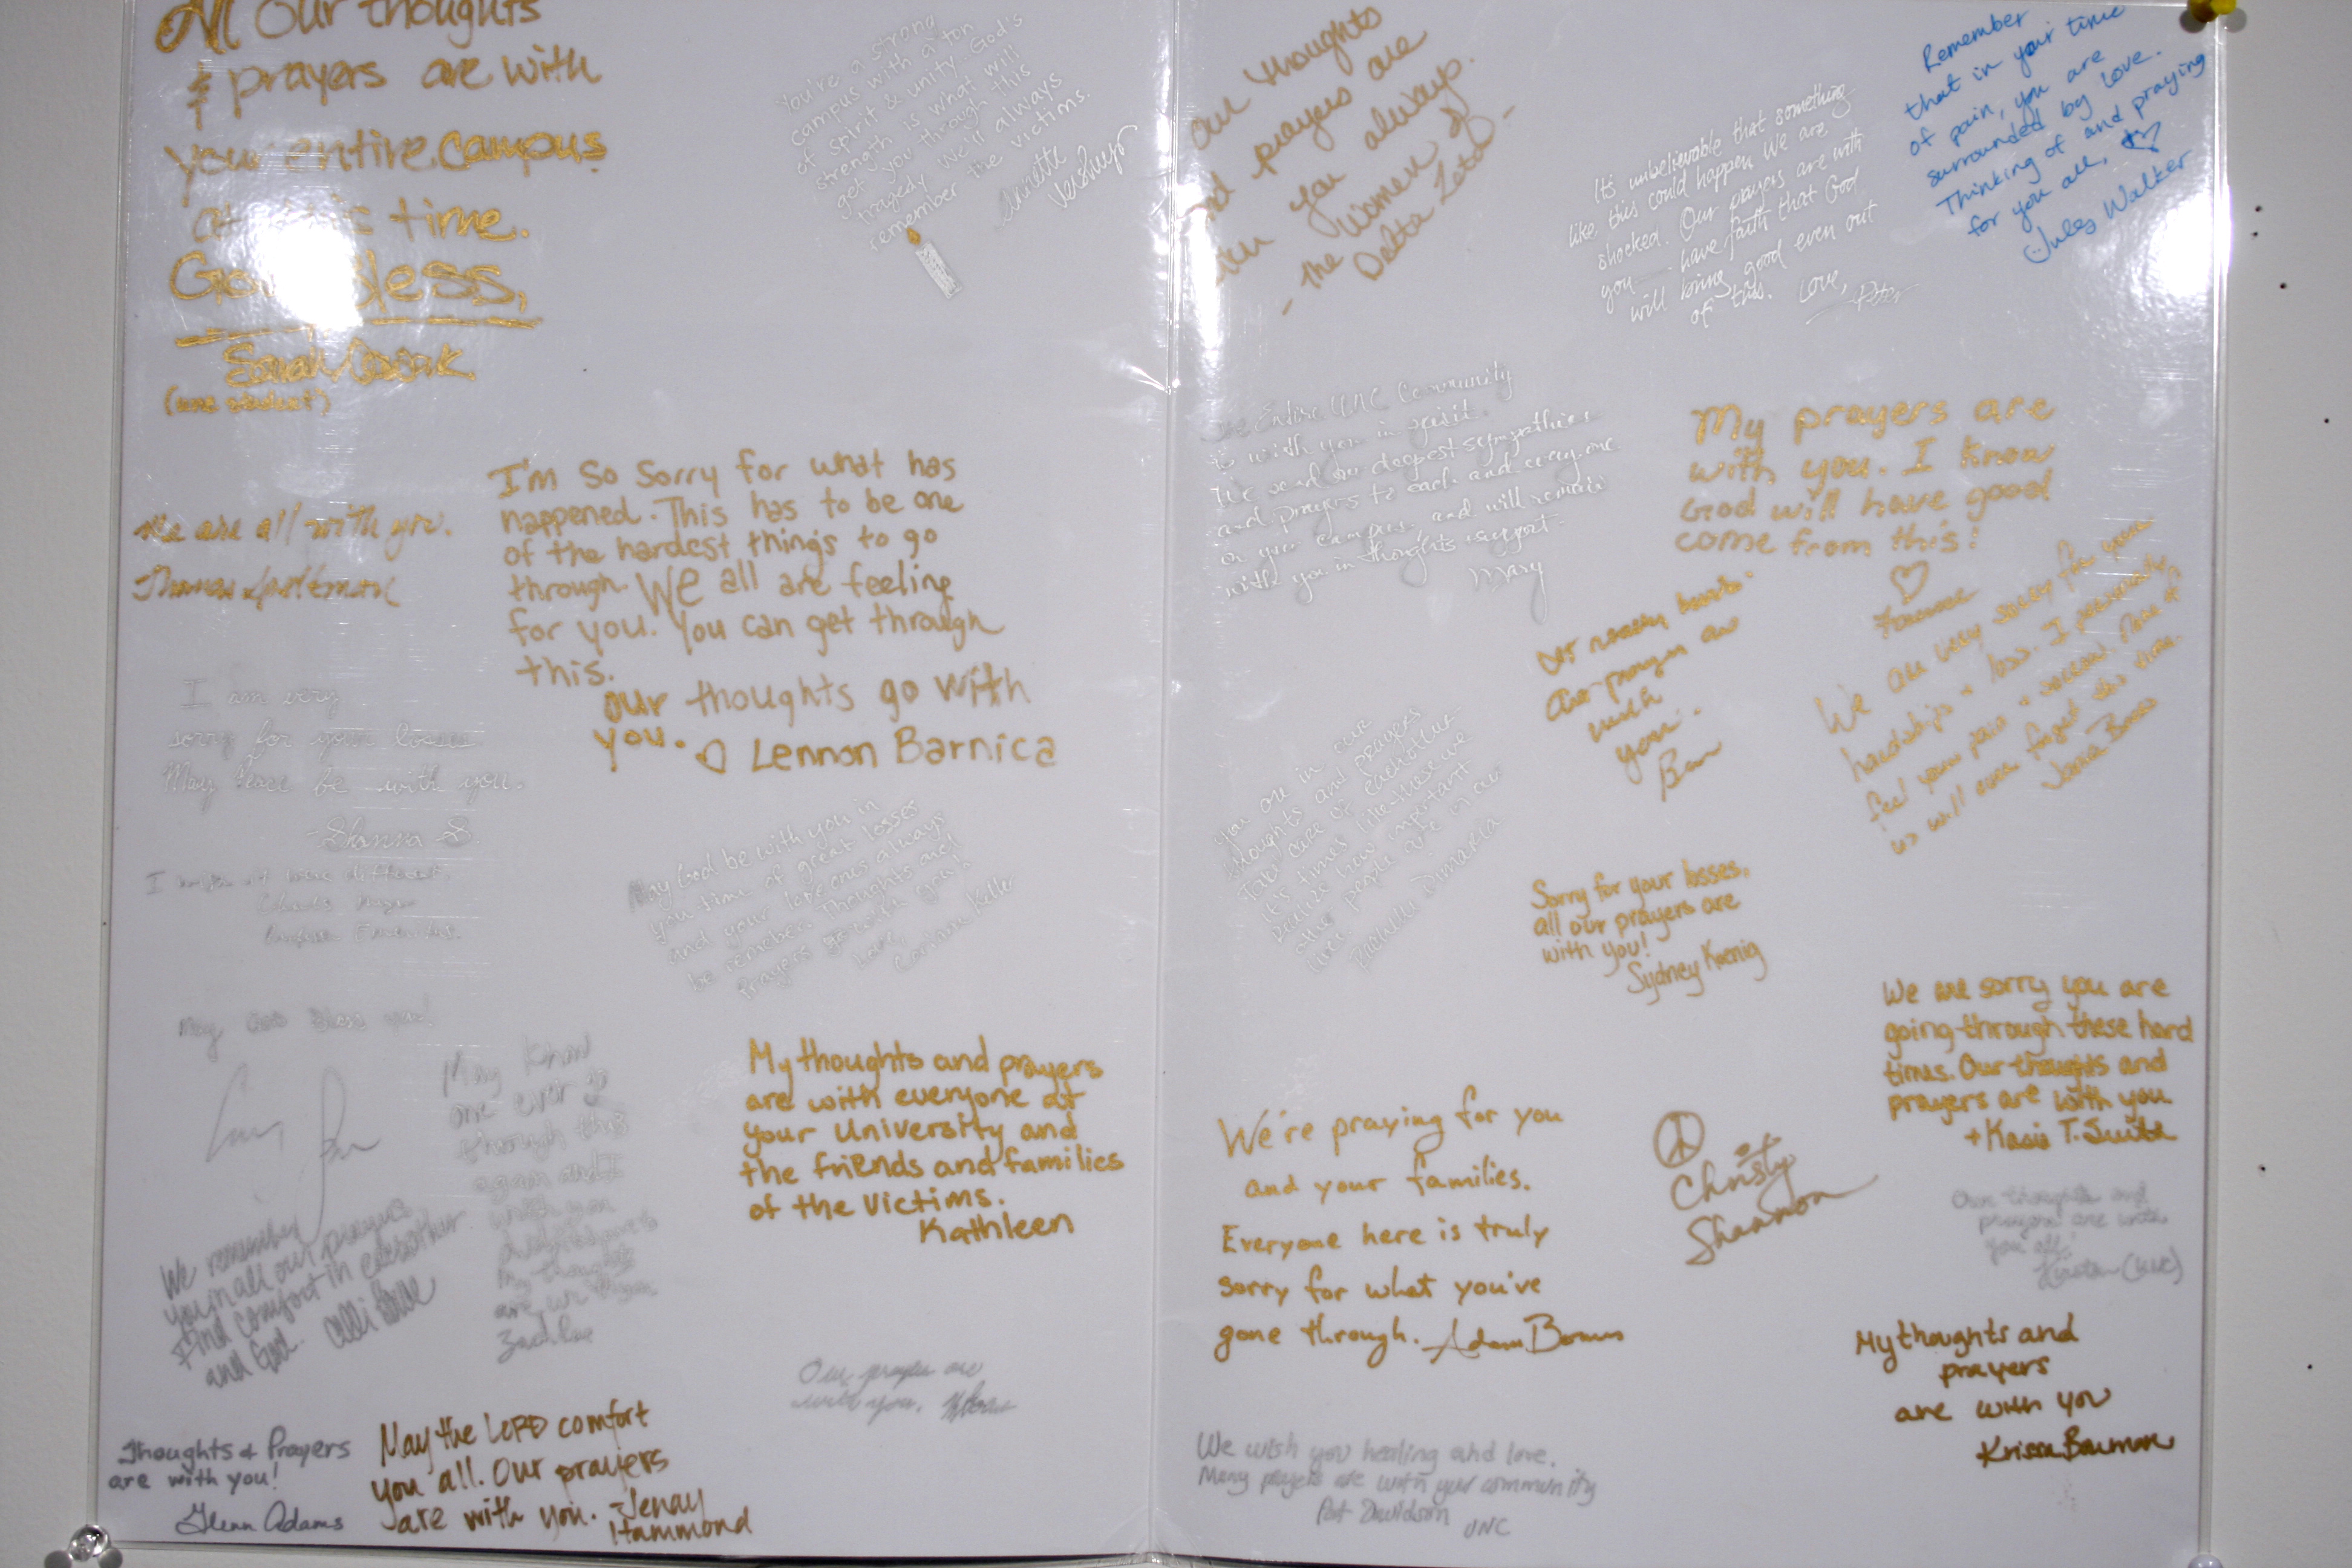 All our thoughts
& prayers are with
your entire campus
at this time.
God Bless,
Sarah
You're a strong
campus with a ton
of spirit & unity. God's
strength is what will
get you through this
tragedy. We'll always
remember the victims.
Annette
We are all with you.
Thomas
I'm so sorry for what has
happened. This has to be one
of the hardest things to go
through. We all are feeling
for you. You can get through
this.
our thoughts go with
you. ♡ Lennon Barnica
I am very
sorry for your losses.
May Peace be with you.
-Shanna S.
I wish it were different.
Charles
Emeritus.
May God be with you in
you time of great losses
and your love ones always
be remember. Thoughts and
Prayers go with you!
Love,
Corinne Keller
May God Bless you!
May know
one ever go
through this
again and I
wish you
My thoughts
are with you
We remember
you in all our prayers
Find comfort in eachother
and God.
My thoughts and prayers
are with everyone at
your University and
the friends and families
of the victims.
Kathleen
Our prayers are
with you.
Thoughts & Prayers
are with you!
Glenn Adams
May the LORD comfort
you all. Our prayers
are with you. -Jenay
Hammond
Our thoughts
and prayers are
with you always.
- The Women of
Delta Zeta -
It's unbelievable that something
like this could happen. We are
shocked. Our prayers are with
you — have faith that God
will bring good even out
of this. Love,
Peter
Remember
that in your time
of pain, you are
surrounded by love.
Thinking of and praying
for you all, ♡
Jules Walker
The Entire UNC Community
is with you in spirit.
We send our deepest sympathies
and prayers to each and everyone
on your campus, and will remain
with you in thoughts & support.
Mary
My prayers are
with you. I know
God will have good
come from this!
♡
Our prayers are
with
you.
Ben
We are very sorry for your
hardships & loss. I personally
feel your pain & sorrow. None of
us will ever forget this time.
You are in our
thoughts and prayers
Take care of eachother
it's times like these we
realize how important
other people are in our
lives.
Dimaria
Sorry for your losses,
all our prayers are
with you!
Sydney Koenig
We are sorry you are
going through these hard
times. Our thoughts and
prayers are with you.
We're praying for you
and your families.
Everyone here is truly
sorry for what you've
gone through. Adam
Christy
Shannon
Our thoughts and
prayers are with
you all!
My thoughts and
prayers
are with you
Krissa Bauman
We wish you healing and love.
Many prayers are with your community
Pat Davidson
UNC